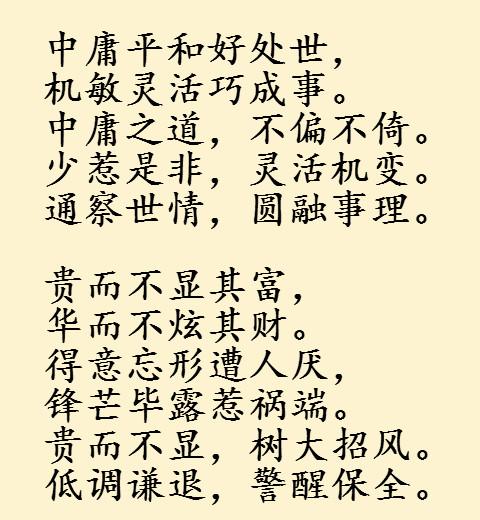 中庸平和好处世，
机敏灵活巧成事。
中庸之道，不偏不倚。
少惹是非，灵活机变。
通察世情，圆融事理。
贵而不显其富，
华而不炫其财。
得意忘形遭人厌，
锋芒毕露惹祸端。
贵而不显，树大招风。
低调谦退，警醒保全。